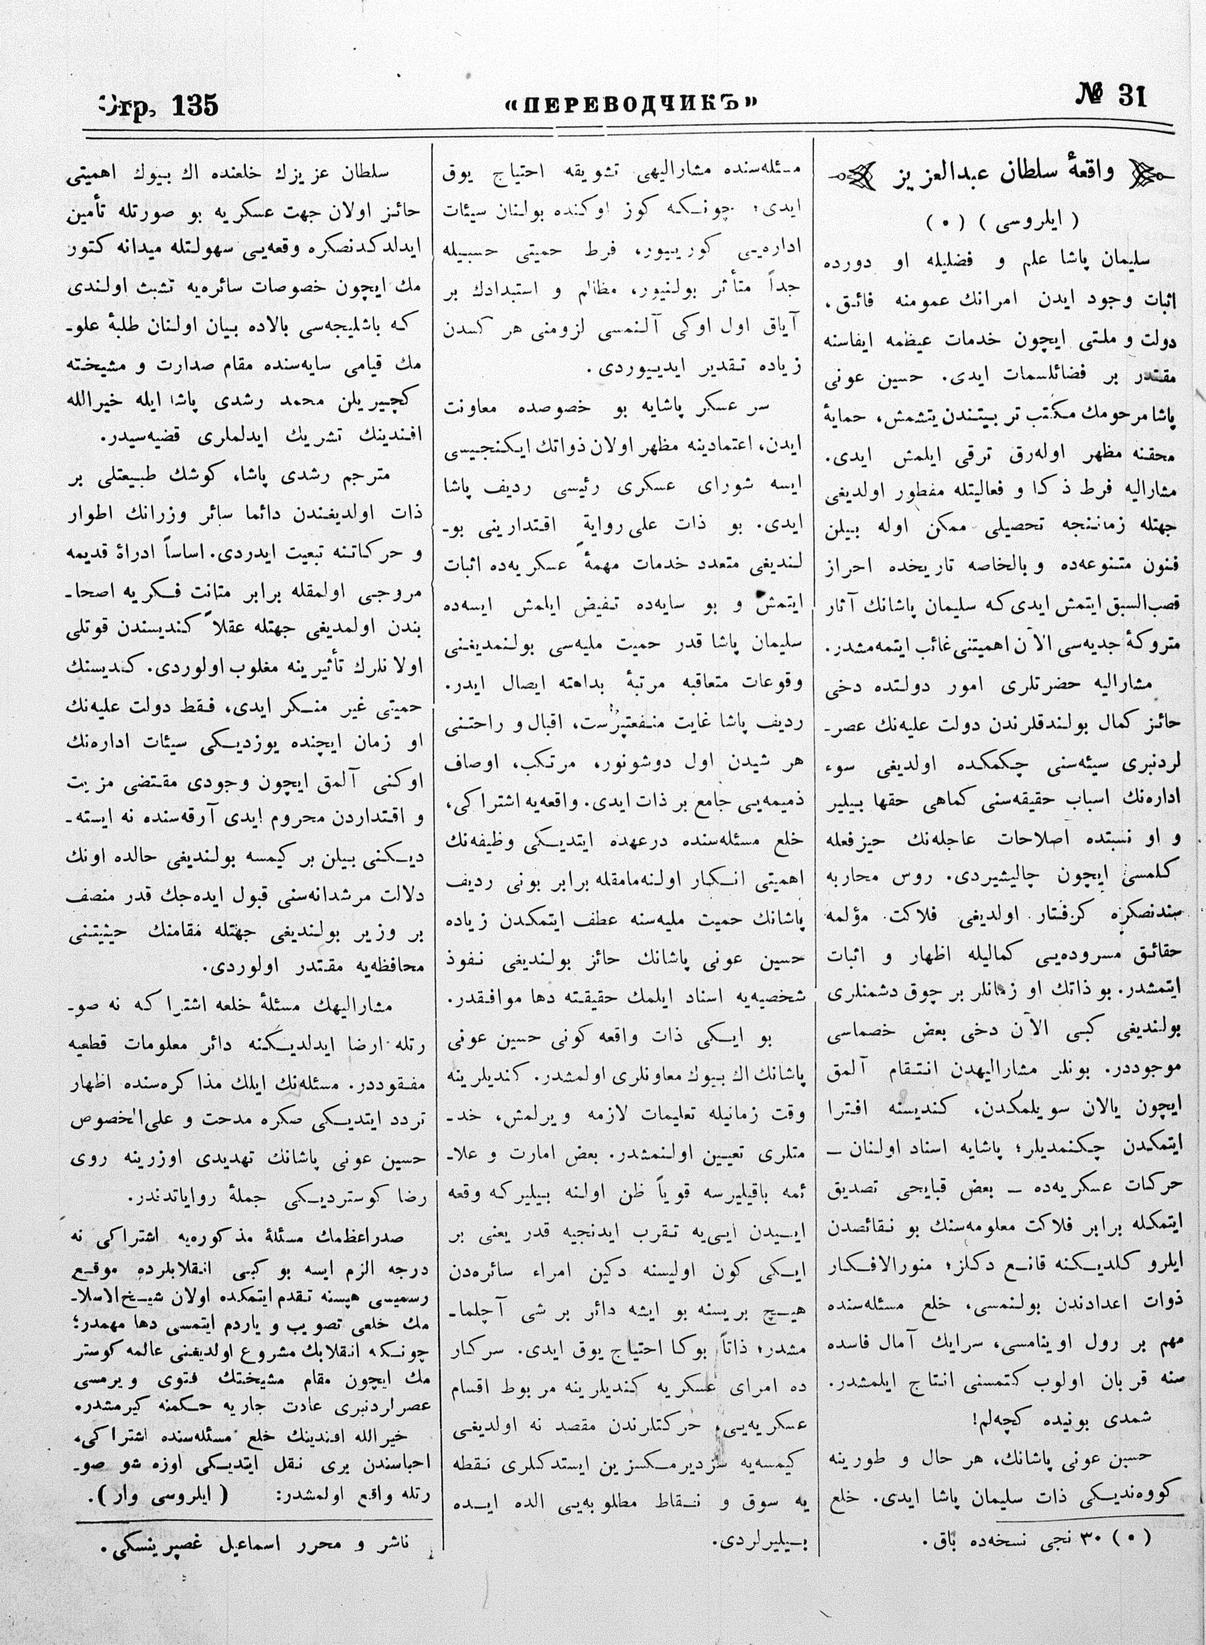 Стр. 135
«ПЕРЕВОДЧИКЪ»
№ 31
واقعهٔ سلطان عبدالعزیز
( ایلروسی ) ( ٥ )
سلیمان پاشا علم و فضلیله او دورده
اثبات وجود ایدن امرانك عمومنه فائق،
دولت و ملتی ایچون خدمات عیظمه ایفاسنه
مقتدر بر فضائلسمات ایدی. حسین عونی
پاشا مرحومك مكتب تر بیتندن یتشمش، حمایهٔ
محقنه مظهر اوله‌رق ترقی ایلمش ایدی.
مشارالیه فرط ذكا و فعالیتله مفطور اولدیغی
جهتله زماننجه تحصیلی ممكن اوله بیلن
فنون متنوعه‌ده و بالخاصه تاریخده احراز
قصب‌السبق ایتمش ایدی‌كه سلیمان پاشانك آثار
متروكهٔ جدیه‌سی الآن اهمیتنی غائب ایتمه‌مشدر.
مشارالیه حضرتلری امور دولتده دخی
حائز كمال بولندقلرندن دولت علیه‌نك عصر-
لردنبری سیئه‌سنی چكمكده اولدیغی سوء
اداره‌نك اسباب حقیقه‌سنی كماهی حقها بیلیر
و او نسبتده اصلاحات عاجله‌نك حیزفعله
كلمسی ایچون چالیشیردی. روس محاربه
سندنصكره كرفتار اولدیغی فلاكت مؤلمه
حقائق مسروده‌یی كمالیله اظهار و اثبات
ایتمشدر. بو ذاتك او زمانلر بر چوق دشمنلری
بولندیغی كبی الآن دخی بعض خصماسی
موجوددر. بونلر مشارالیهدن انتقام آلمق
ایچون یالان سویلمكدن، كندیسنه افترا
ایتمكدن چكنمدیلر؛ پاشایه اسناد اولنان —
حركات عسكریه‌ده — بعض قبایحی تصدیق
ایتمكله برابر فلاكت معلومه‌سنك بو نقائصدن
ایلرو كلدیكنه قانع دكلز؛ منورالافكار
ذوات اعدادندن بولنمسی، خلع مسئله‌سنده
مهم بر رول اوینامسی، سرایك آمال فاسده
سنه قربان اولوب كتمسنی انتاج ایلمشدر.
شمدی بونیده كچه‌لم!
حسین عونی پاشانك، هر حال و طورینه
كووه‌ندیكی ذات سلیمان پاشا ایدی. خلع
( ٥ ) ٣٠ نجی نسخه‌ده باق.
مسئله‌سنده مشارالیهی تشویقه احتیاج یوق
ایدی؛ چونكه كوز اوكنده بولنان سیئات
اداره‌یی كورییور، فرط حمیتی حسبیله
جداً متأثر بولنیور، مظالم و استبدادك بر
آیاق اول اوكی آلنمسی لزومنی هر كسدن
زیاده تقدیر ایدییوردی.
سر عسكر پاشایه بو خصوصده معاونت
ایدن، اعتمادینه مظهر اولان ذواتك ایكنجیسی
ایسه شورای عسكری رئیسی ردیف پاشا
ایدی. بو ذات علی روایةٍ اقتدارینی بو-
لندیغی متعدد خدمات مهمهٔ عسكریه‌ده اثبات
ایتمش و بو سایه‌ده تفیض ایلمش ایسه‌ده
سلیمان پاشا قدر حمیت ملیه‌سی بولنمدیغنی
وقوعات متعاقبه مرتبهٔ بداهته ایصال ایدر.
ردیف پاشا غایت منفعتپرست، اقبال و راحتنی
هر شیدن اول دوشونور، مرتكب، اوصاف
ذمیمه‌یی جامع بر ذات ایدی. واقعه‌یه اشتراكی،
خلع مسئله‌سنده درعهده ایتدیكی وظیفه‌نك
اهمیتی انكار اولنه‌مامقله برابر بونی ردیف
پاشانك حمیت ملیه‌سنه عطف ایتمكدن زیاده
حسین عونی پاشانك حائز بولندیغی نفوذ
شخصیه‌یه اسناد ایلمك حقیقته دها موافقدر.
بو ایكی ذات واقعه كونی حسین عونی
پاشانك اك بیوك معاونلری اولمشدر. كندیلرینه
وقت زمانیله تعلیمات لازمه ویرلمش، خد-
متلری تعیین اولنمشدر. بعض امارت و علا-
ئمه باقیلیرسه قویاً ظن اولنه بیلیركه وقعه
اییدن ایی‌یه تقرب ایدنجیه قدر یعنی بر
ایكی كون اولیسنه دكین امراء سائره‌دن
هیچ بریسنه بو ایشه دائر بر شی آچلما-
مشدر؛ ذاتاً بوكا احتیاج یوق ایدی. سركار
ده امرای عسكریه كندیلرینه مربوط اقسام
عسكریه‌یی، حركتلرندن مقصد نه اولدیغی
كیمسه‌یه سزدیرمكسزین ایستدكلری نقطه
یه سوق و نقاط مطلوبه‌یی الده ایده
بیلیرلردی.
سلطان عزیزك خلعنده اك بیوك اهمیتی
حائز اولان جهت عسكریه بو صورتله تأمین
ایدلدكدنصكره وقعه‌یی سهولتله میدانه كتور
مك ایچون خصوصات سائره‌یه تشبث اولندی
كه باشلیجه‌سی بالاده بیان اولنان طلبهٔ علو-
مك قیامی سایه‌سنده مقام صدارت و مشیخته
كچیریلن محمد رشدی پاشا ایله خیرالله
افندینك تشریك ایدلملری قضیه‌سیدر.
مترجم رشدی پاشا، كوشك طبیعتلی بر
ذات اولدیغندن دائما سائر وزرانك اطوار
و حركاتنه تبعیت ایدردی. اساساً ادارهٔ قدیمه
مروجی اولمقله برابر متانت فكریه اصحا-
بندن اولمدیغی جهتله عقلاً كندیسندن قوتلی
اولانلرك تأثیرینه مغلوب اولوردی. كندیسنك
حمیتی غیر منكر ایدی، فقط دولت علیه‌نك
او زمان ایچنده یوزدیكی سیئات اداره‌نك
اوكنی آلمق ایچون وجودی مقتضی مزیت
و اقتداردن محروم ایدی آرقه‌سنده نه ایسته-
دیكنی بیلن بر كیمسه بولندیغی حالده اونك
دلالت مرشدانه‌سنی قبول ایده‌جك قدر منصف
بر وزیر بولندیغی جهتله مقامنك حیثیتنی
محافظه‌یه مقتدر اولوردی.
مشارالیهك مسئلهٔ خلعه اشتراكه نه صو-
رتله ارضا ایدلدیكنه دائر معلومات قطعیه
مفقوددر. مسئله‌نك ایلك مذاكره‌سنده اظهار
تردد ایتدیكی صكره مدحت و علی‌الخصوص
حسین عونی پاشانك تهدیدی اوزرینه روی
رضا كوستردیكی جملهٔ روایاتدندر.
صدراعظمك مسئلهٔ مذكوره‌یه اشتراكی نه
درجه الزم ایسه بو كبی انقلابلرده موقع
رسمیسی هپسنه تقدم ایتمكده اولان شیخ‌الاسلا-
مك خلعی تصویب و یاردم ایتمسی دها مهمدر؛
چونكه انقلابك مشروع اولدیغنی عالمه كوستر
مك ایچون مقام مشیختك فتوی ویرمسی
عصرلردنبری عادت جاریه حكمنه كیرمشدر.
خیرالله افندینك خلع مسئله‌سنده اشتراكی،
احباسندن بری نقل ایتدیكی اوزه شو صو-
رتله واقع اولمشدر: ( ایلروسی وار ).
ناشر و محرر اسماعیل غصپرینسكی.